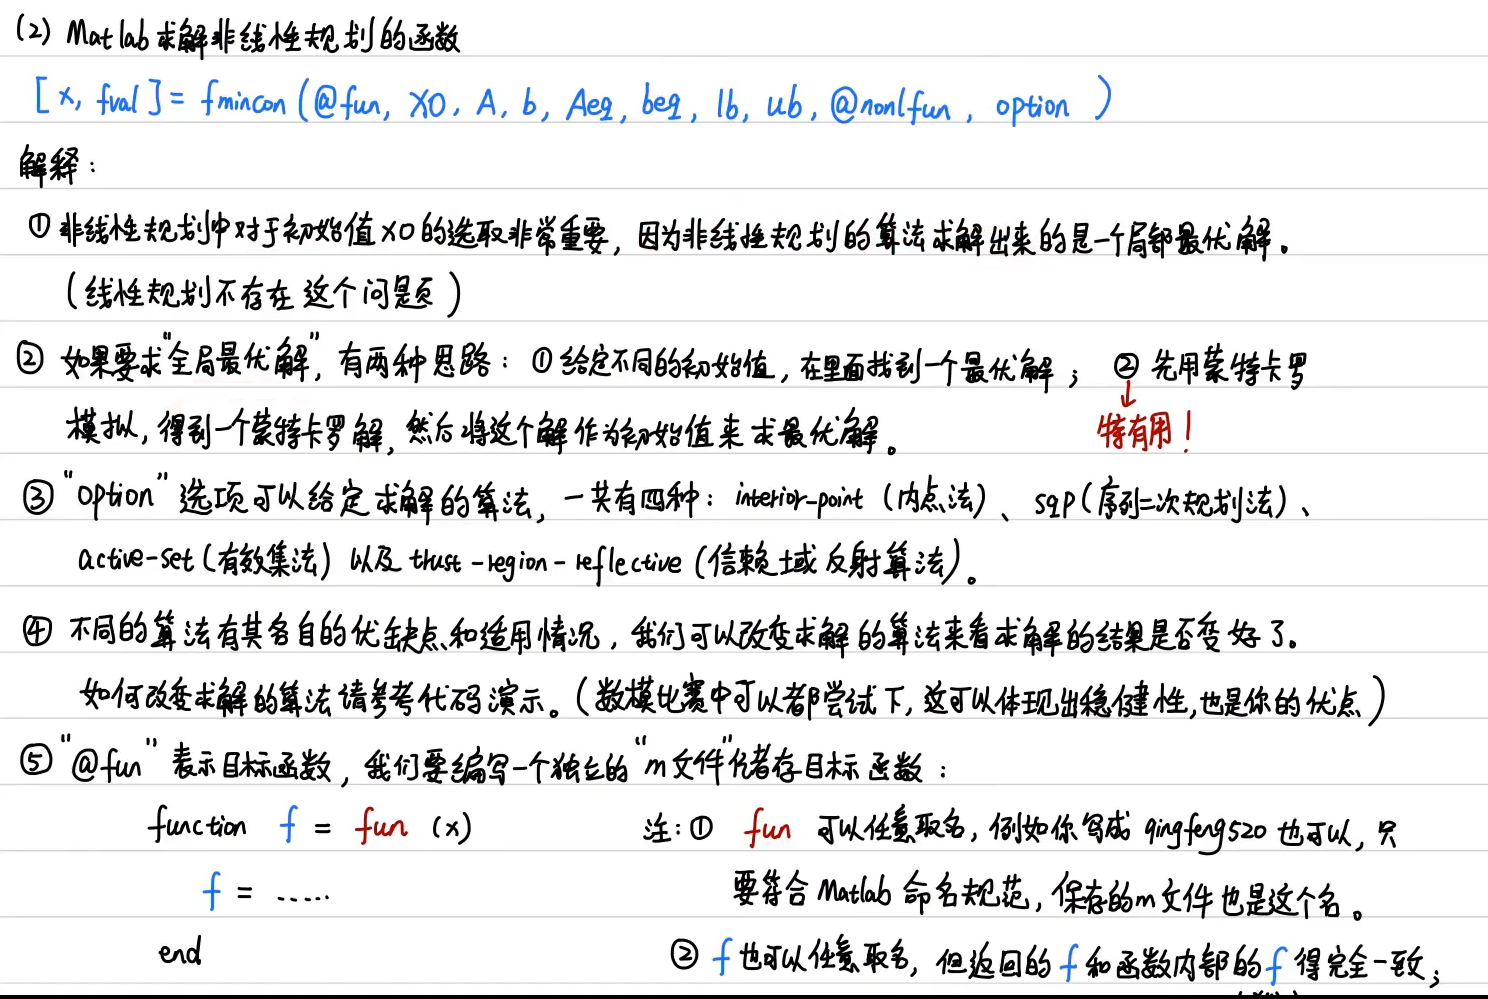 (2) Matlab求解非线性规划的函数
[x, fval] = fmincon(@fun, X0, A, b, Aeq, beq, lb, ub, @nonlfun, option)
解释：
① 非线性规划中对于初始值X0的选取非常重要，因为非线性规划的算法求解出来的是一个局部最优解。
(线性规划不存在这个问题)
② 如果要求“全局最优解”，有两种思路：① 给定不同的初始值，在里面找到一个最优解； ② 先用蒙特卡罗
模拟，得到一个蒙特卡罗解，然后将这个解作为初始值来求最优解。 特有用！
③ “option”选项可以给定求解的算法，一共有四种：interior-point (内点法)、sqp(序列二次规划法)、
active-set(有效集法) 以及 trust-region-reflective (信赖域反射算法)。
④ 不同的算法有其各自的优缺点和适用情况，我们可以改变求解的算法来看求解的结果是否变好了。
如何改变求解的算法请参考代码演示。(数模比赛中可以都尝试下，这可以体现出稳健性，也是你的优点)
⑤ “@fun”表示目标函数，我们要编写一个独立的“m文件”储存目标函数：
function f = fun (x) 注：① fun 可以任意取名，例如你写成 qingfeng520 也可以，只
f = ..... 要符合Matlab命名规范，保存的m文件也是这个名。
end ② f也可以任意取名，但返回的f和函数内部的f得完全一致；